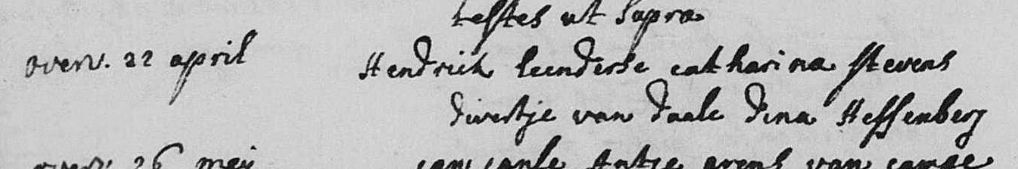 testes ut supra
overv. 22 april Hendrick leenderse catharina stevens
divertje van daale dina Hessenberg
overv. 26 mei van